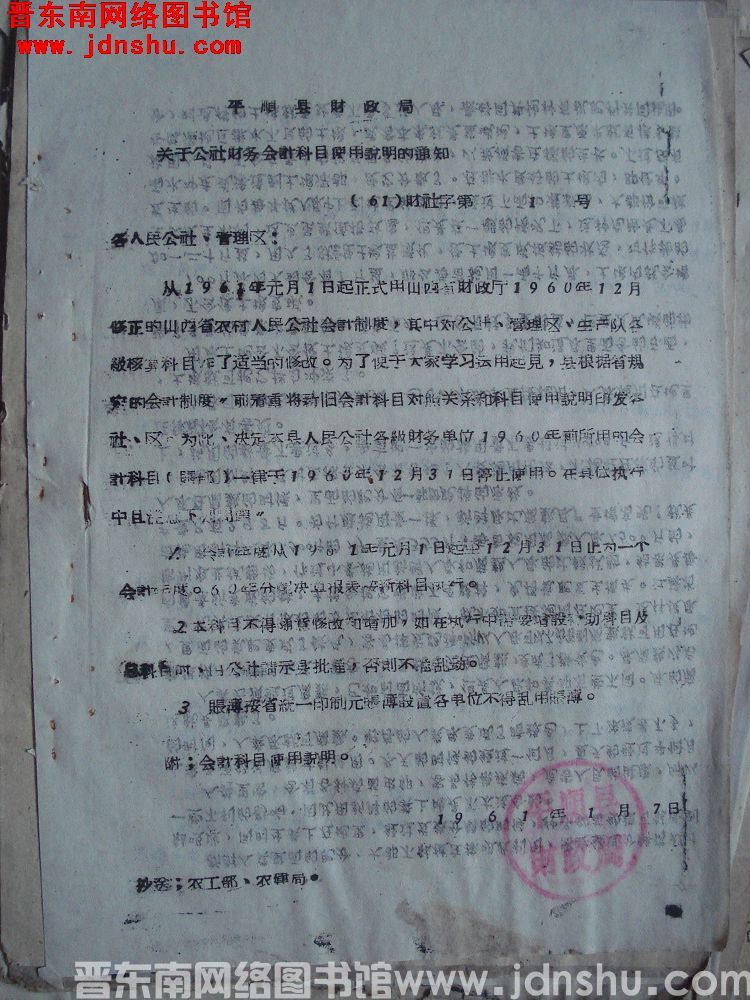 晋东南网络图书馆
www.jdnshu.com
平順县財政局
关于公社財务会計科目使用說明的通知
(61)財社字第1号
各人民公社、管理区：
从1961年元月1日起正式由山西省財政厅1960年12月
修正的山西省农村人民公社会計制度，其中对公社、管理区、生产队各
級核算科目作了适当的修改。为了便于大家学习运用起見，县根据省規
定的会計制度，前着重将新旧会計科目对照关系和科目使用說明印发各
社、区。为此、决定本县人民公社各級财务单位1960年前所用的会
計科目一律于1960年12月31日停止使用。在具位执行
中且注意下
会計年度从1961年元月1日起至12月31日止为一个
会計年度。60年分配决算报表按新科目执行。
2本科目不得随自修改和增加，如在执行中需要增設助科目及
总科目时，由公社請示县批准，否則不准乱动。
3 賬薄按省統一印制元賬薄設置各单位不得乱用賬薄。
附：会計科目使用說明。
1961年1月7日
平順县
財政局
抄送：农工部、农業局。
晋东南网络图书馆www.jdnshu.com